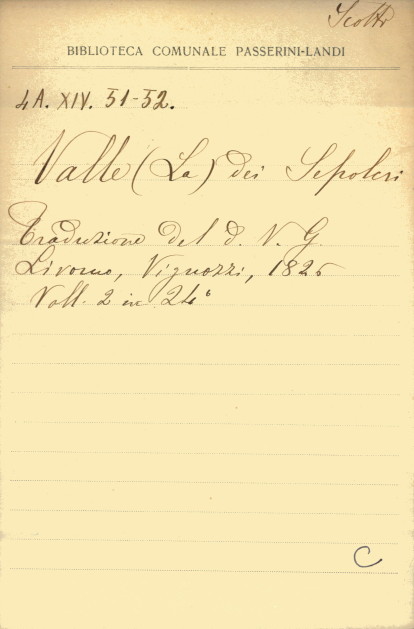 Scotti
BIBLIOTECA COMUNALE PASSERINI-LANDI
4A. XIV. 51-52.
Valle (La) dei Sepolcri
Traduzione del d. V. G.
Livorno, Vignozzi, 1825
Voll. 2 in 24°
C